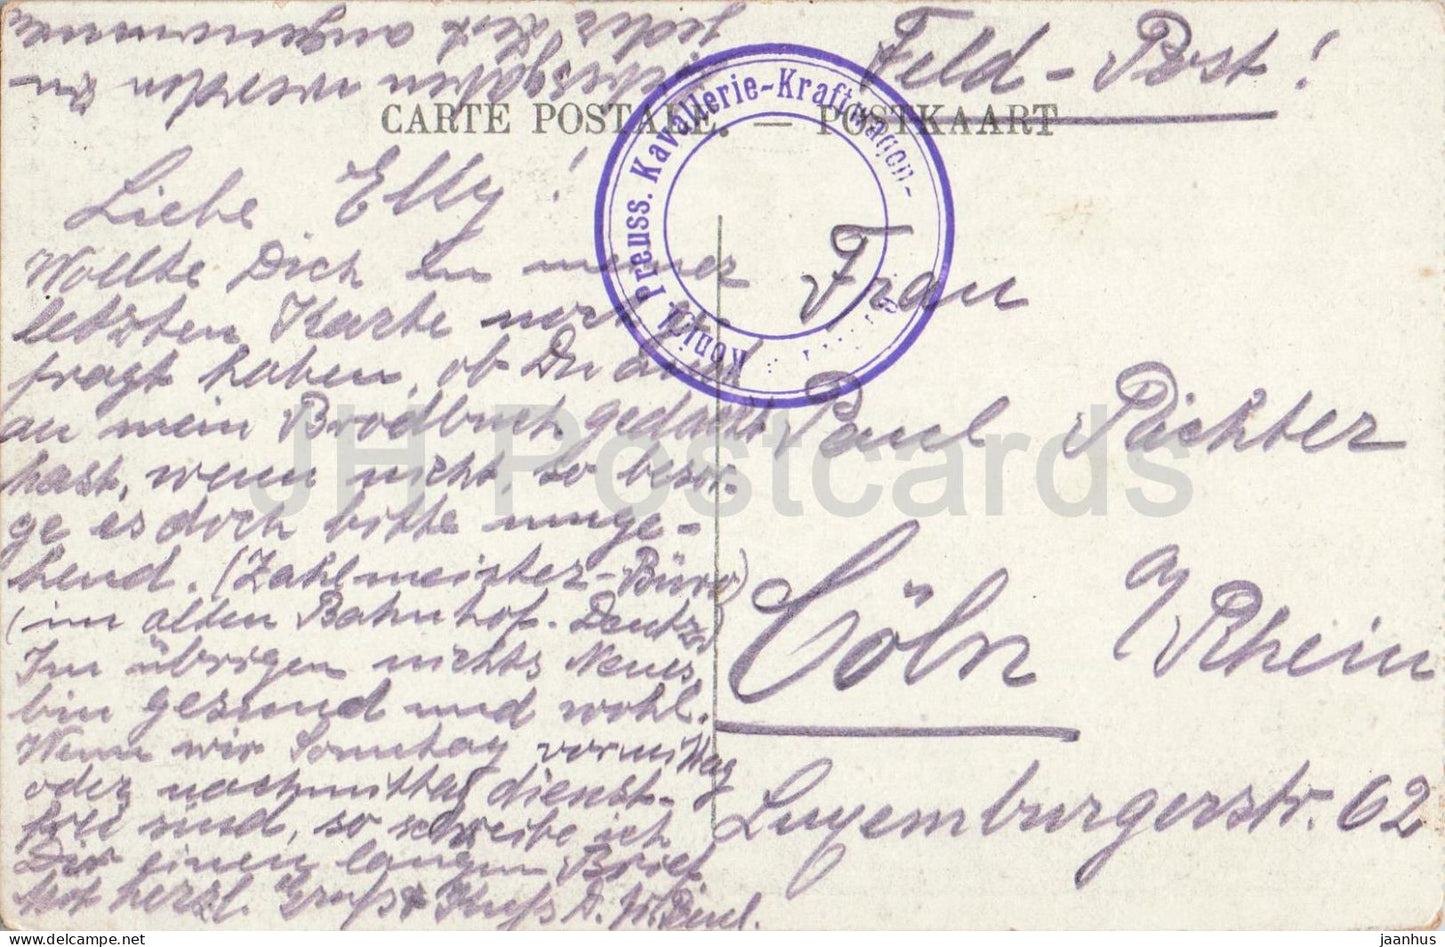 Feld-Post!
CARTE POSTALE. — POSTKAART
Königl. Preuss. Kavallerie-Kraftwagen-
Liebe Elly!
Wollte Dich in meiner
letzten Karte noch ge
fragt haben, ob Du auch
an mein Brodbuch gedacht
hast, wenn nicht, so besor-
ge es doch bitte umge-
hend. (Zahlmeister-Büro)
(im alten Bahnhof. Deutz)
Im übrigen nichts Neues,
bin gesund und wohl.
Wenn wir Sonntag vormittag
oder nachmittag dienst-
frei sind, so schreibe ich
Dir einen langen Brief
herzl. Gruß & Kuß D. Paul.
werden zu
jeder Zeit angenommen
Frau
Paul Pächter
Cöln a/Rhein
Luxemburgerstr. 62
JH Postcards
jaanhus @ delcampe.net